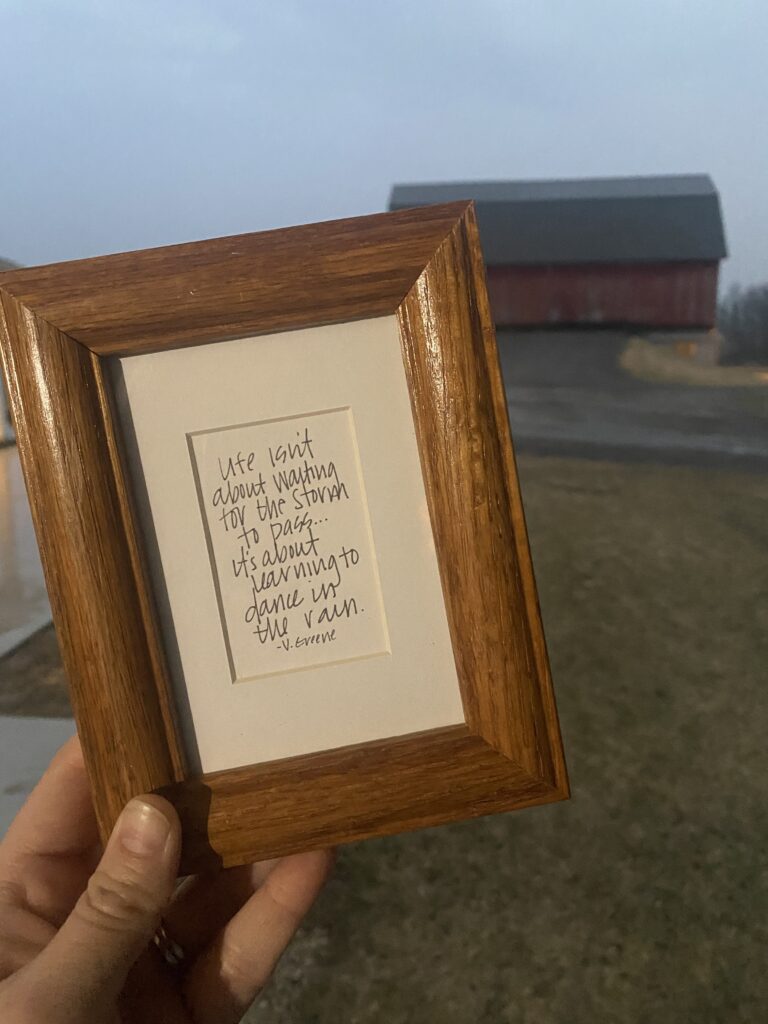 Life isn't
about waiting
for the storm
to pass...
it's about
learning to
dance in
the rain.
-V. Greene